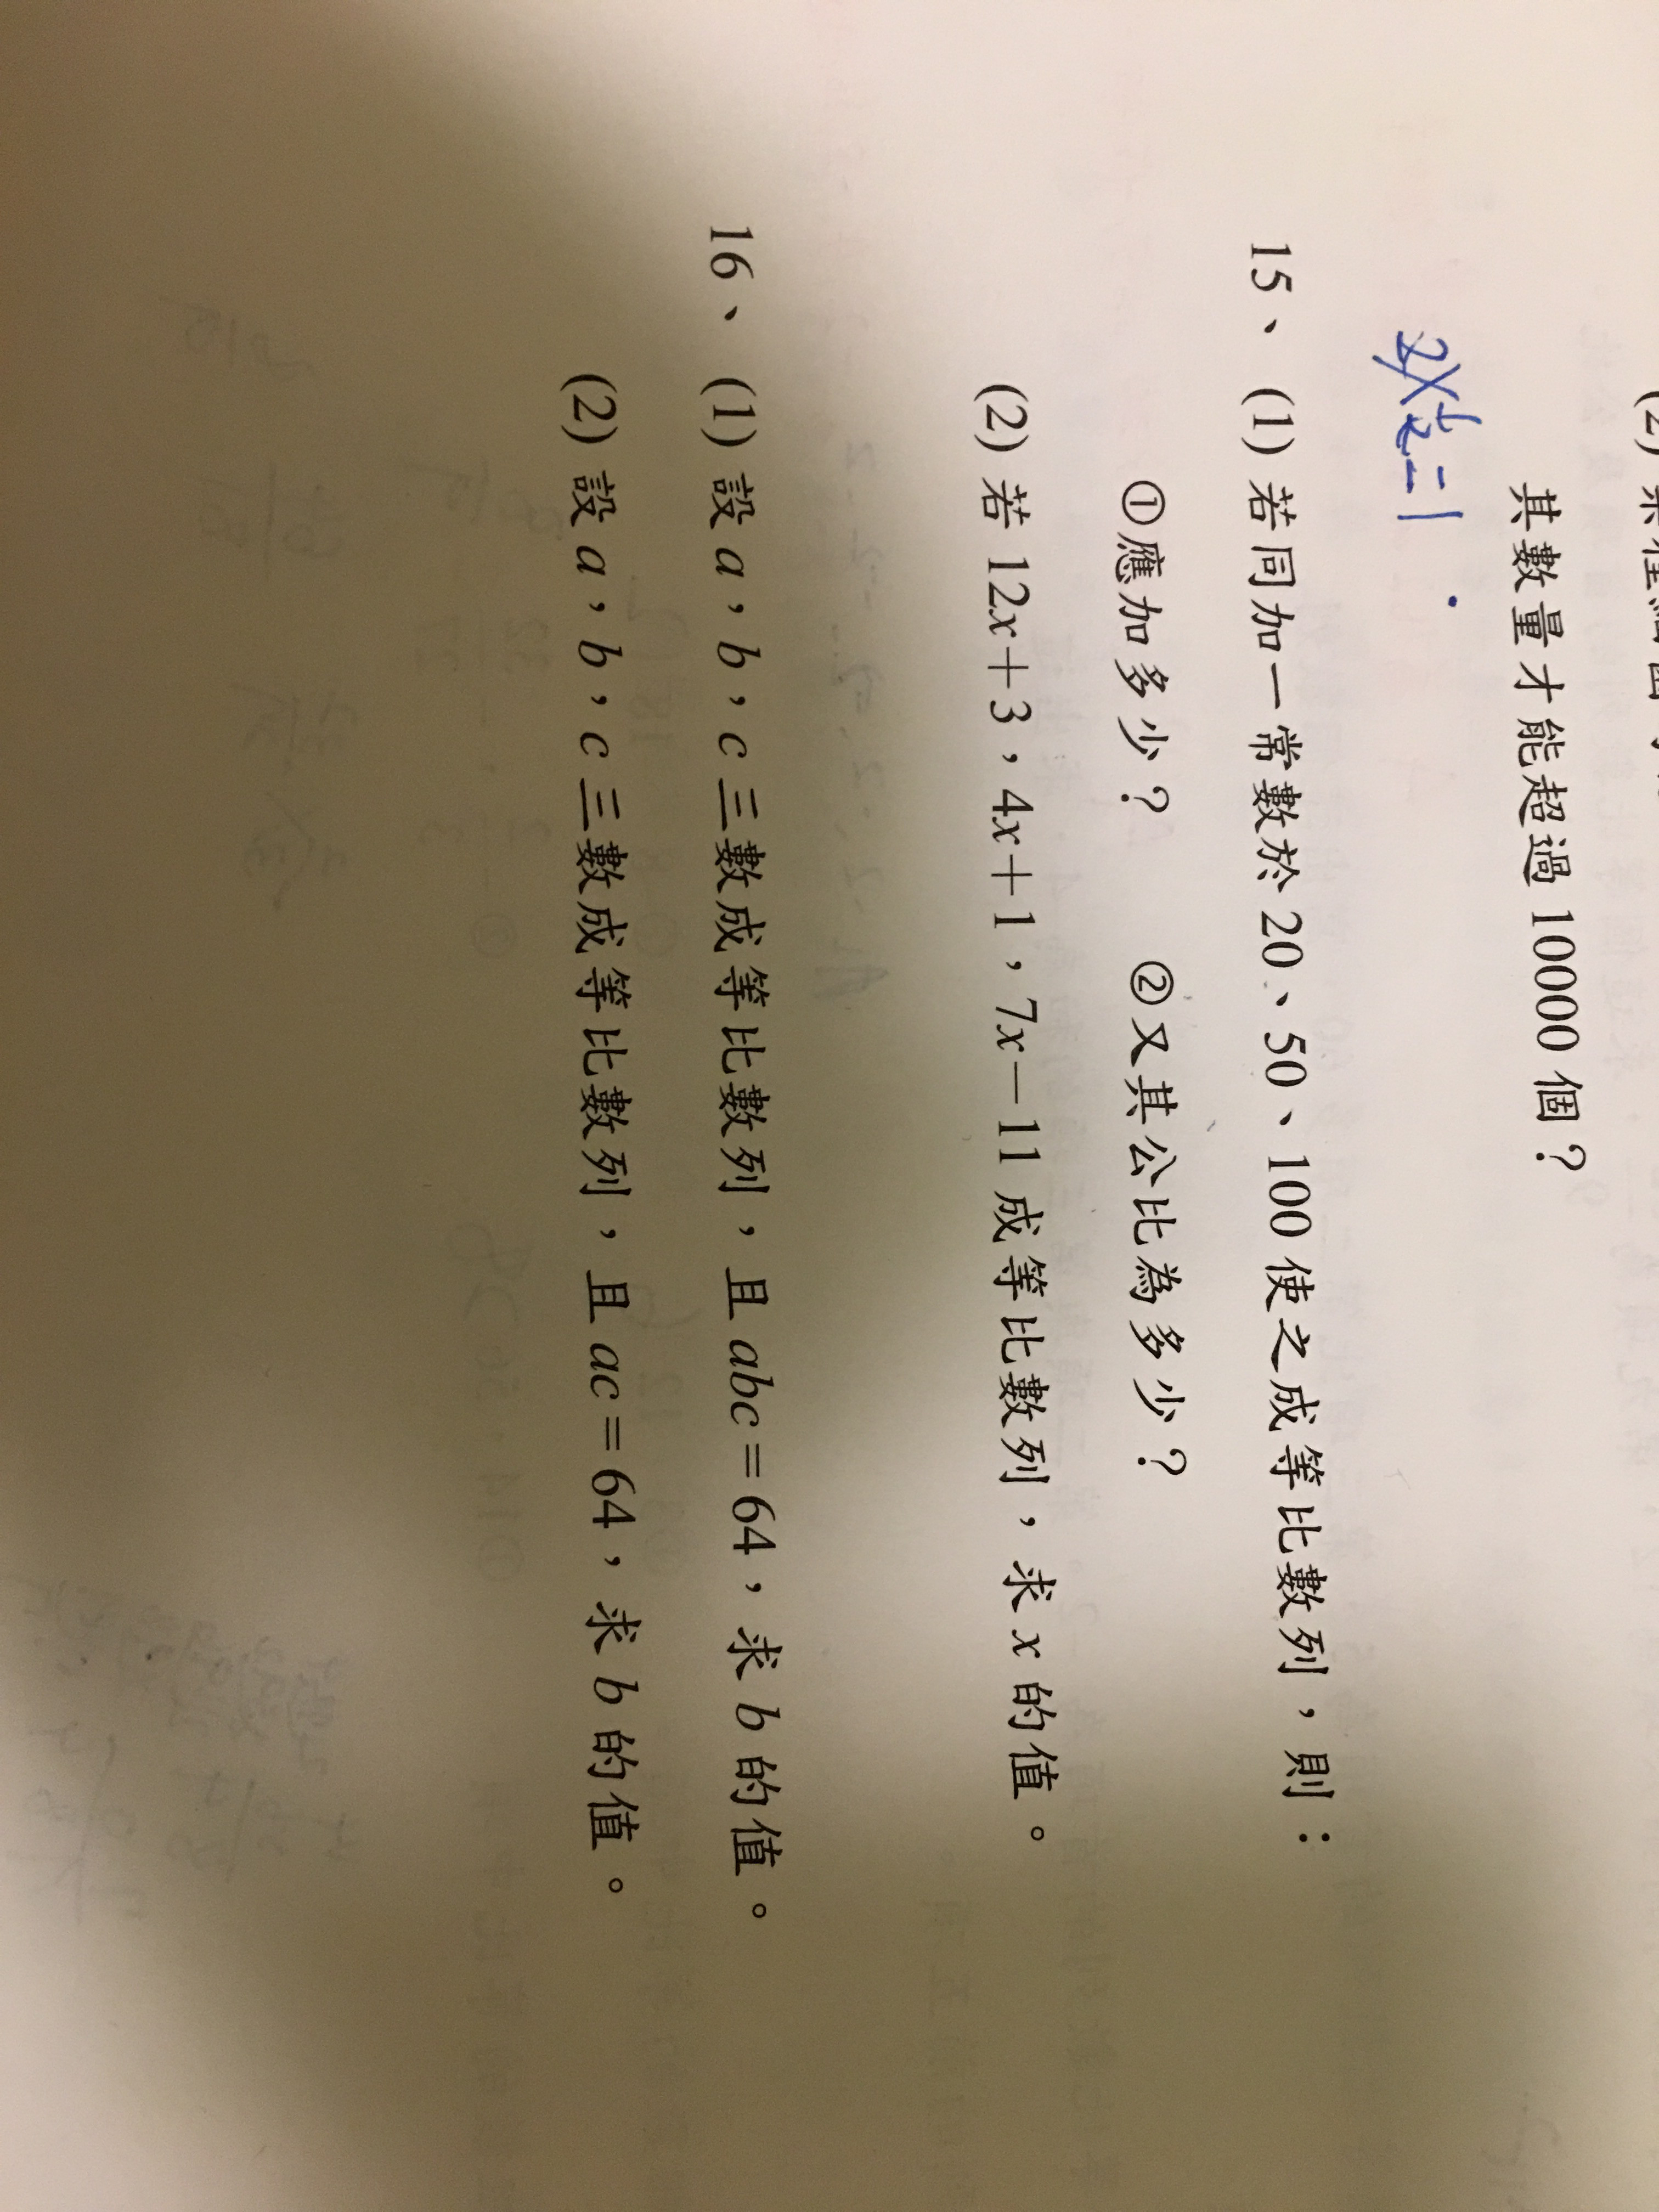 其數量才能超過 10000 個？
15、(1) 若同加一常數於 20、50、100 使之成等比數列，則：
①應加多少？ ②又其公比為多少？
(2) 若 12x＋3，4x＋1，7x－11 成等比數列，求 x 的值。
16、(1) 設 a，b，c 三數成等比數列，且 abc＝64，求 b 的值。
(2) 設 a，b，c 三數成等比數列，且 ac＝64，求 b 的值。